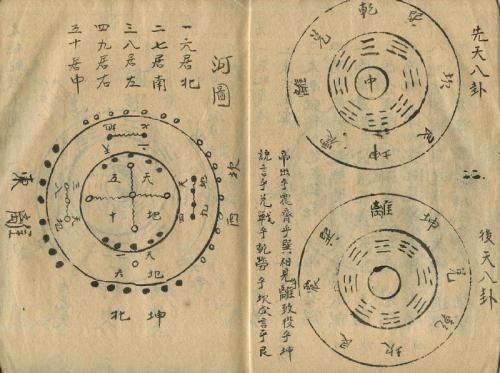 先天八卦
乾
兌
坎
艮
震
坤
中
後天八卦
離
坤
兌
乾
坎
艮
震
巽
帝出乎震齊乎巽相見乎離致役乎坤
說言乎兌戰乎乾勞乎坎成言乎艮
河圖
一六居北
二七居南
三八居左
四九居右
五十居中
坎
西
天五
地十
天一
地六
東
離
坤
北